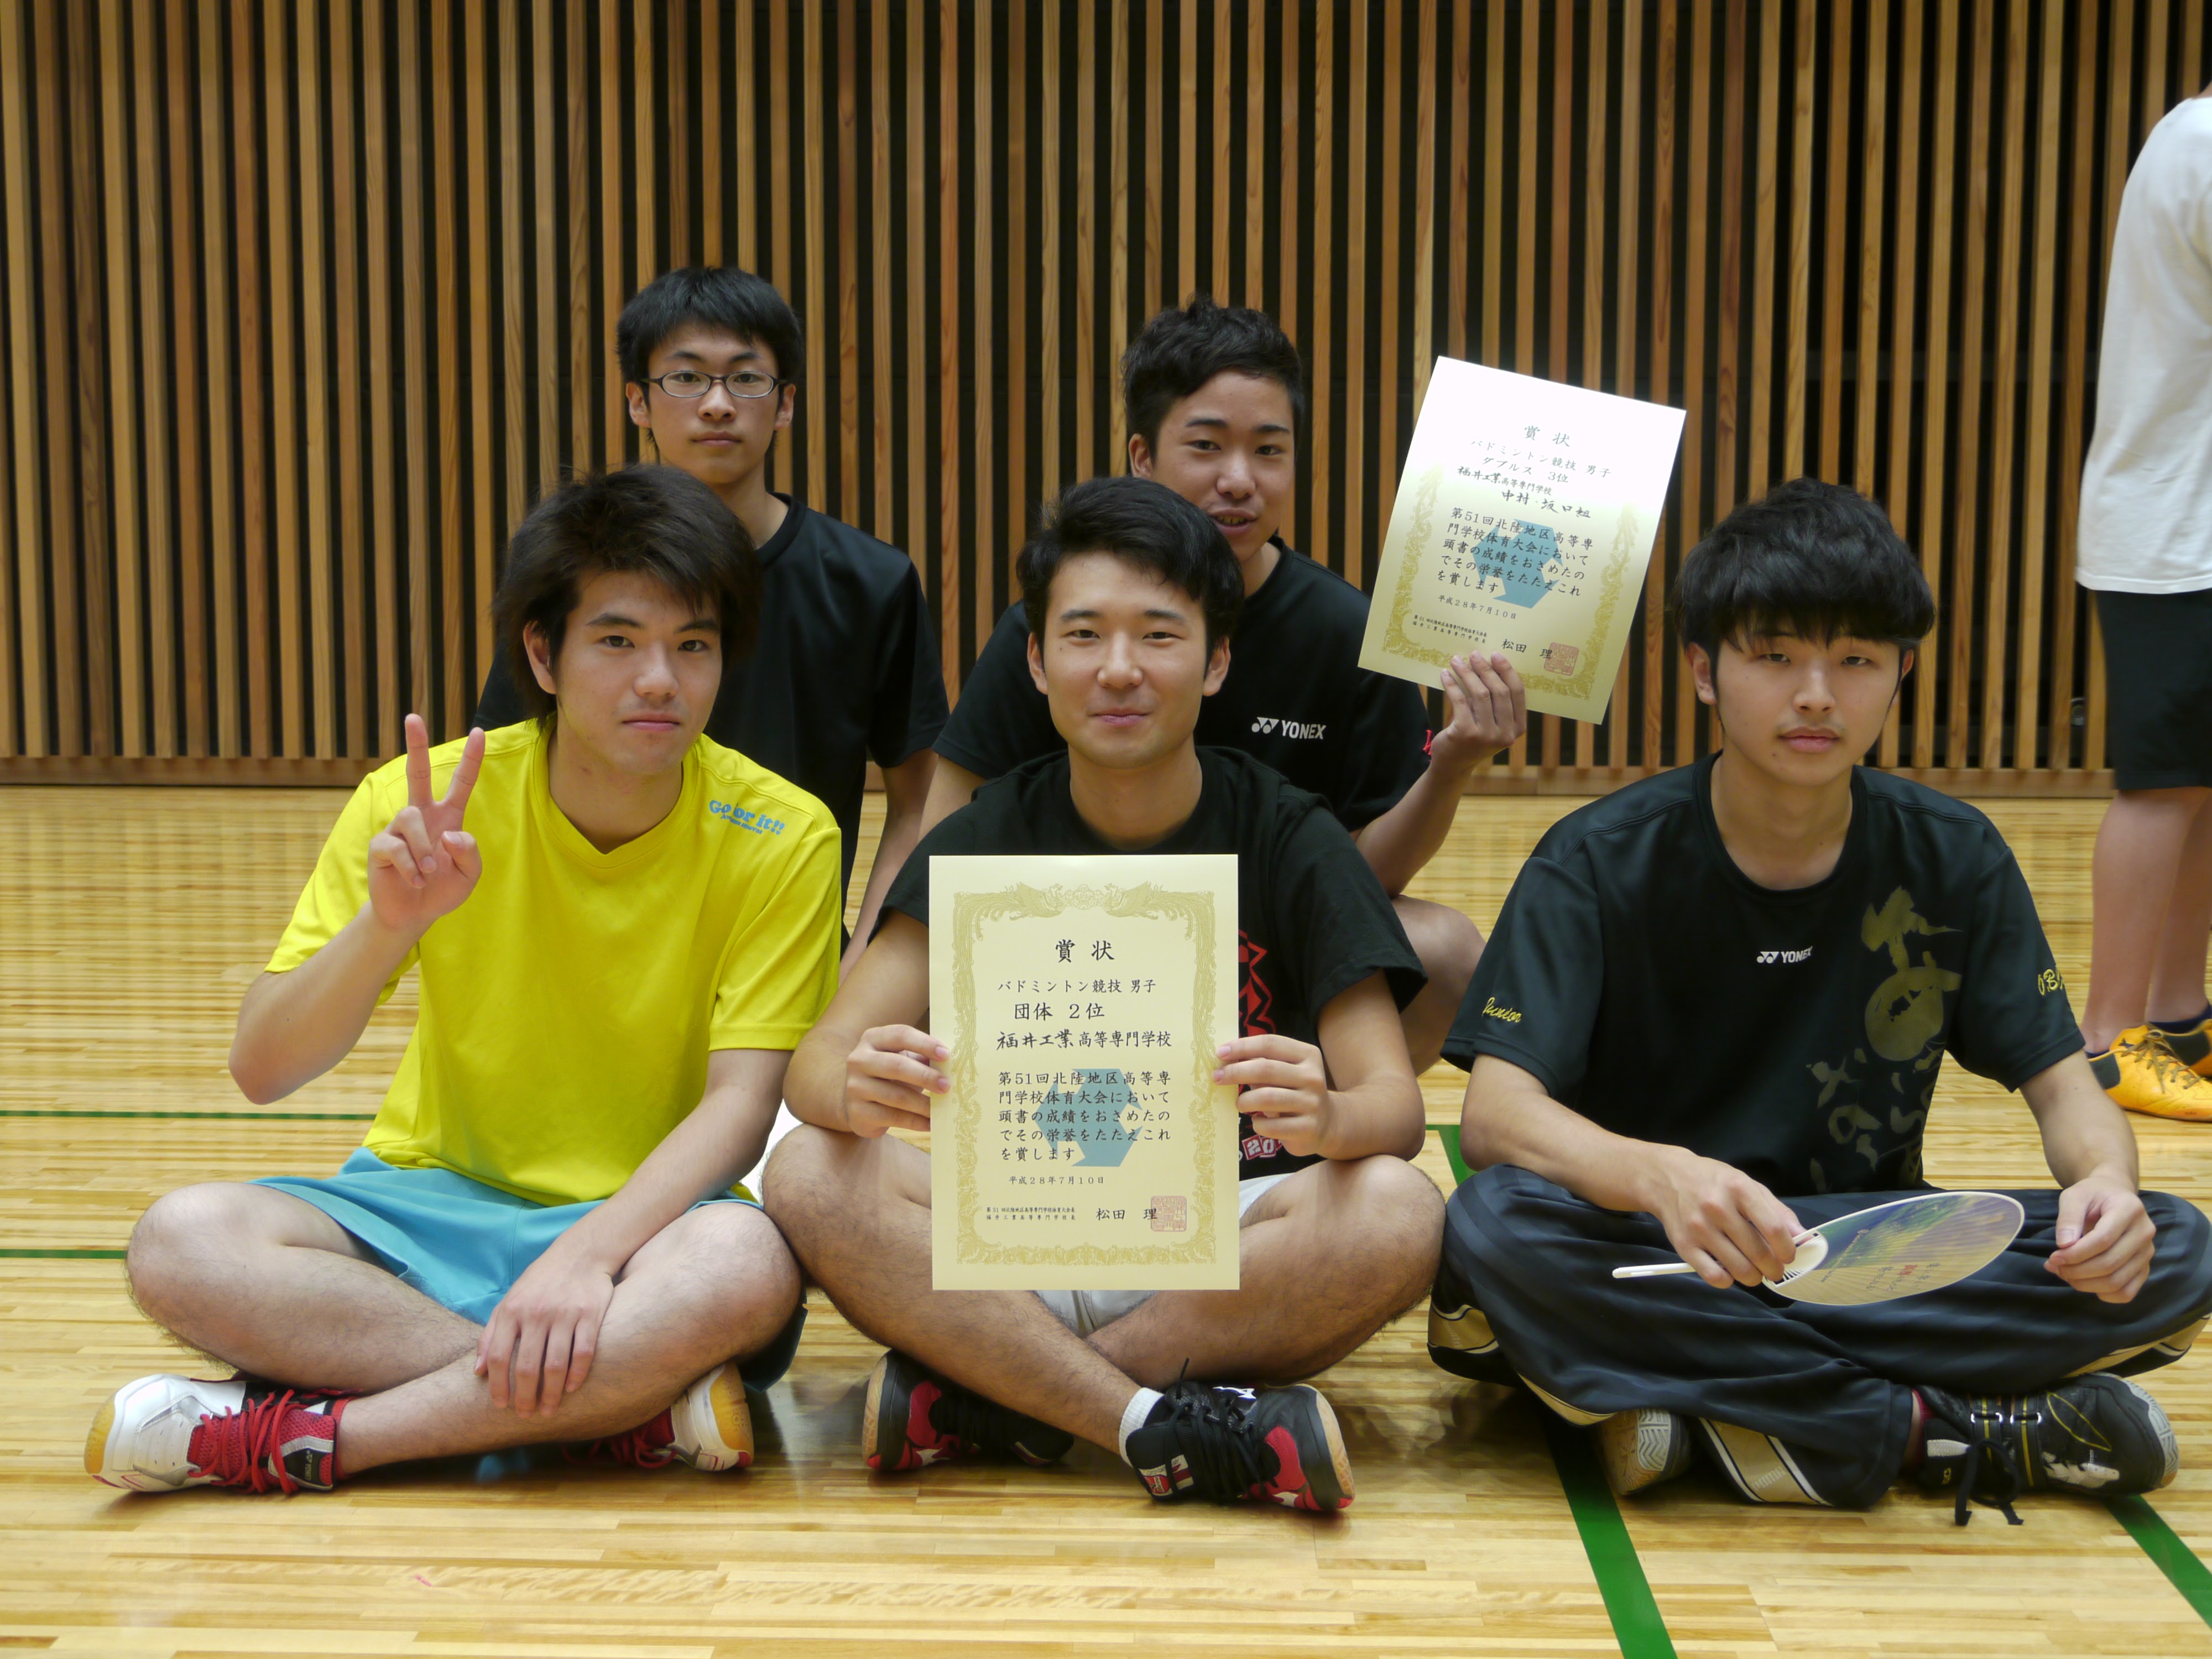 賞状
バドミントン競技 男子
ダブルス 3位
福井工業高等専門学校
中村・坂口組
第51回北陸地区高等専
門学校体育大会において
頭書の成績をおさめたの
でその栄誉をたたえこれ
を賞します
平成28年7月10日
第51回北陸地区高等専門学校体育大会会長
福井工業高等専門学校長
松田 理
YONEX
Go for it!!
賞状
バドミントン競技 男子
団体 2位
福井工業高等専門学校
第51回北陸地区高等専
門学校体育大会において
頭書の成績をおさめたの
でその栄誉をたたえこれ
を賞します
平成28年7月10日
第51回北陸地区高等専門学校体育大会会長
福井工業高等専門学校長
松田 理
YONEX
Junior